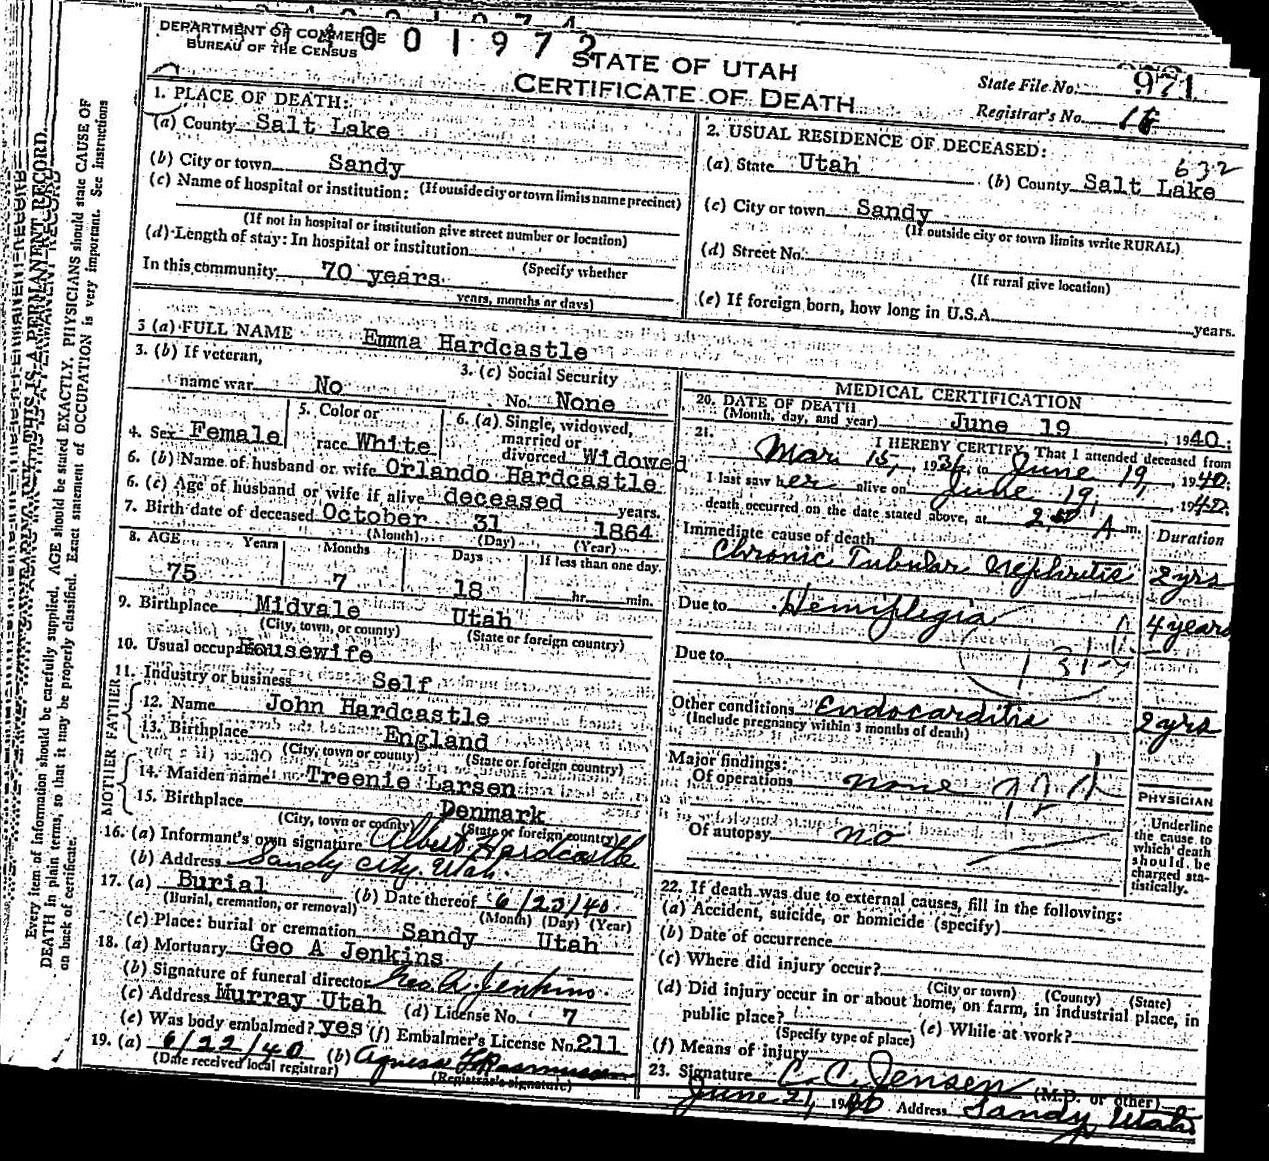 4001972
DEPARTMENT OF COMMERCE
BUREAU OF THE CENSUS
STATE OF UTAH
CERTIFICATE OF DEATH
State File No. 971
Registrar's No. 18
1. PLACE OF DEATH:
(a) County Salt Lake
(b) City or town Sandy
(If outside city or town limits name precinct)
(c) Name of hospital or institution:
(If not in hospital or institution give street number or location)
(d) Length of stay: In hospital or institution
(Specify whether
In this community 70 years
years, months or days)
2. USUAL RESIDENCE OF DECEASED:
632
(a) State Utah (b) County Salt Lake
(c) City or town Sandy
(If outside city or town limits write RURAL)
(d) Street No.
(If rural give location)
(e) If foreign born, how long in U.S.A. years.
3 (a) FULL NAME Emma Hardcastle
3. (b) If veteran,
name war No
3. (c) Social Security
No. None
4. Sex Female
5. Color or
race White
6. (a) Single, widowed,
married or
divorced Widowed
6. (b) Name of husband or wife Orlando Hardcastle
6. (c) Age of husband or wife if alive deceased years.
7. Birth date of deceased October 31 1864
(Month) (Day) (Year)
8. AGE Years Months Days If less than one day
75 7 18 hr. min.
9. Birthplace Midvale Utah
(City, town, or county) (State or foreign country)
10. Usual occupa Housewife
11. Industry or business Self
FATHER
12. Name John Hardcastle
13. Birthplace England
(City, town or county) (State or foreign country)
MOTHER
14. Maiden name Treenie Larsen
15. Birthplace Denmark
(City, town or county) (State or foreign country)
16. (a) Informant's own signature Albert Hardcastle
(b) Address Sandy City Utah.
17. (a) Burial (b) Date thereof 6/23/40
(Burial, cremation, or removal) (Month) (Day) (Year)
(c) Place: burial or cremation Sandy Utah
18. (a) Mortuary Geo A Jenkins
(b) Signature of funeral director Geo. A. Jenkins.
(c) Address Murray Utah (d) License No. 7
(e) Was body embalmed? yes (f) Embalmer's License No. 211
19. (a) 6/22/40 (b) Agnes Rasmussen
(Date received local registrar) (Registrar's signature)
MEDICAL CERTIFICATION
20. DATE OF DEATH
(Month, day, and year) June 19, 1940;
21. I HEREBY CERTIFY, That I attended deceased from
Mar. 15, 1936, to June 19, 1940;
I last saw her alive on June 19, 1940;
death occurred on the date stated above, at 2:50 A m.
Immediate cause of death Duration
Chronic Tubular Nephritis 2 yrs
Due to Hemiplegia 4 years
Due to 131
Other conditions Endocarditis 2 yrs
(Include pregnancy within 3 months of death)
Major findings:
Of operations none
Of autopsy no
PHYSICIAN
Underline
the cause to
which death
should be
charged sta-
tistically.
22. If death was due to external causes, fill in the following:
(a) Accident, suicide, or homicide (specify)
(b) Date of occurrence
(c) Where did injury occur?
(City or town) (County) (State)
(d) Did injury occur in or about home, on farm, in industrial place, in
public place? (e) While at work?
(Specify type of place)
(f) Means of injury
23. Signature C. C. Jensen (M.D. or other)
June 21, 1940 Address Sandy Utah
Every item of information should be carefully supplied. AGE should be stated EXACTLY. PHYSICIANS should state CAUSE OF
DEATH in plain terms, so that it may be properly classified. Exact statement of OCCUPATION is very important. See instructions
on back of certificate.